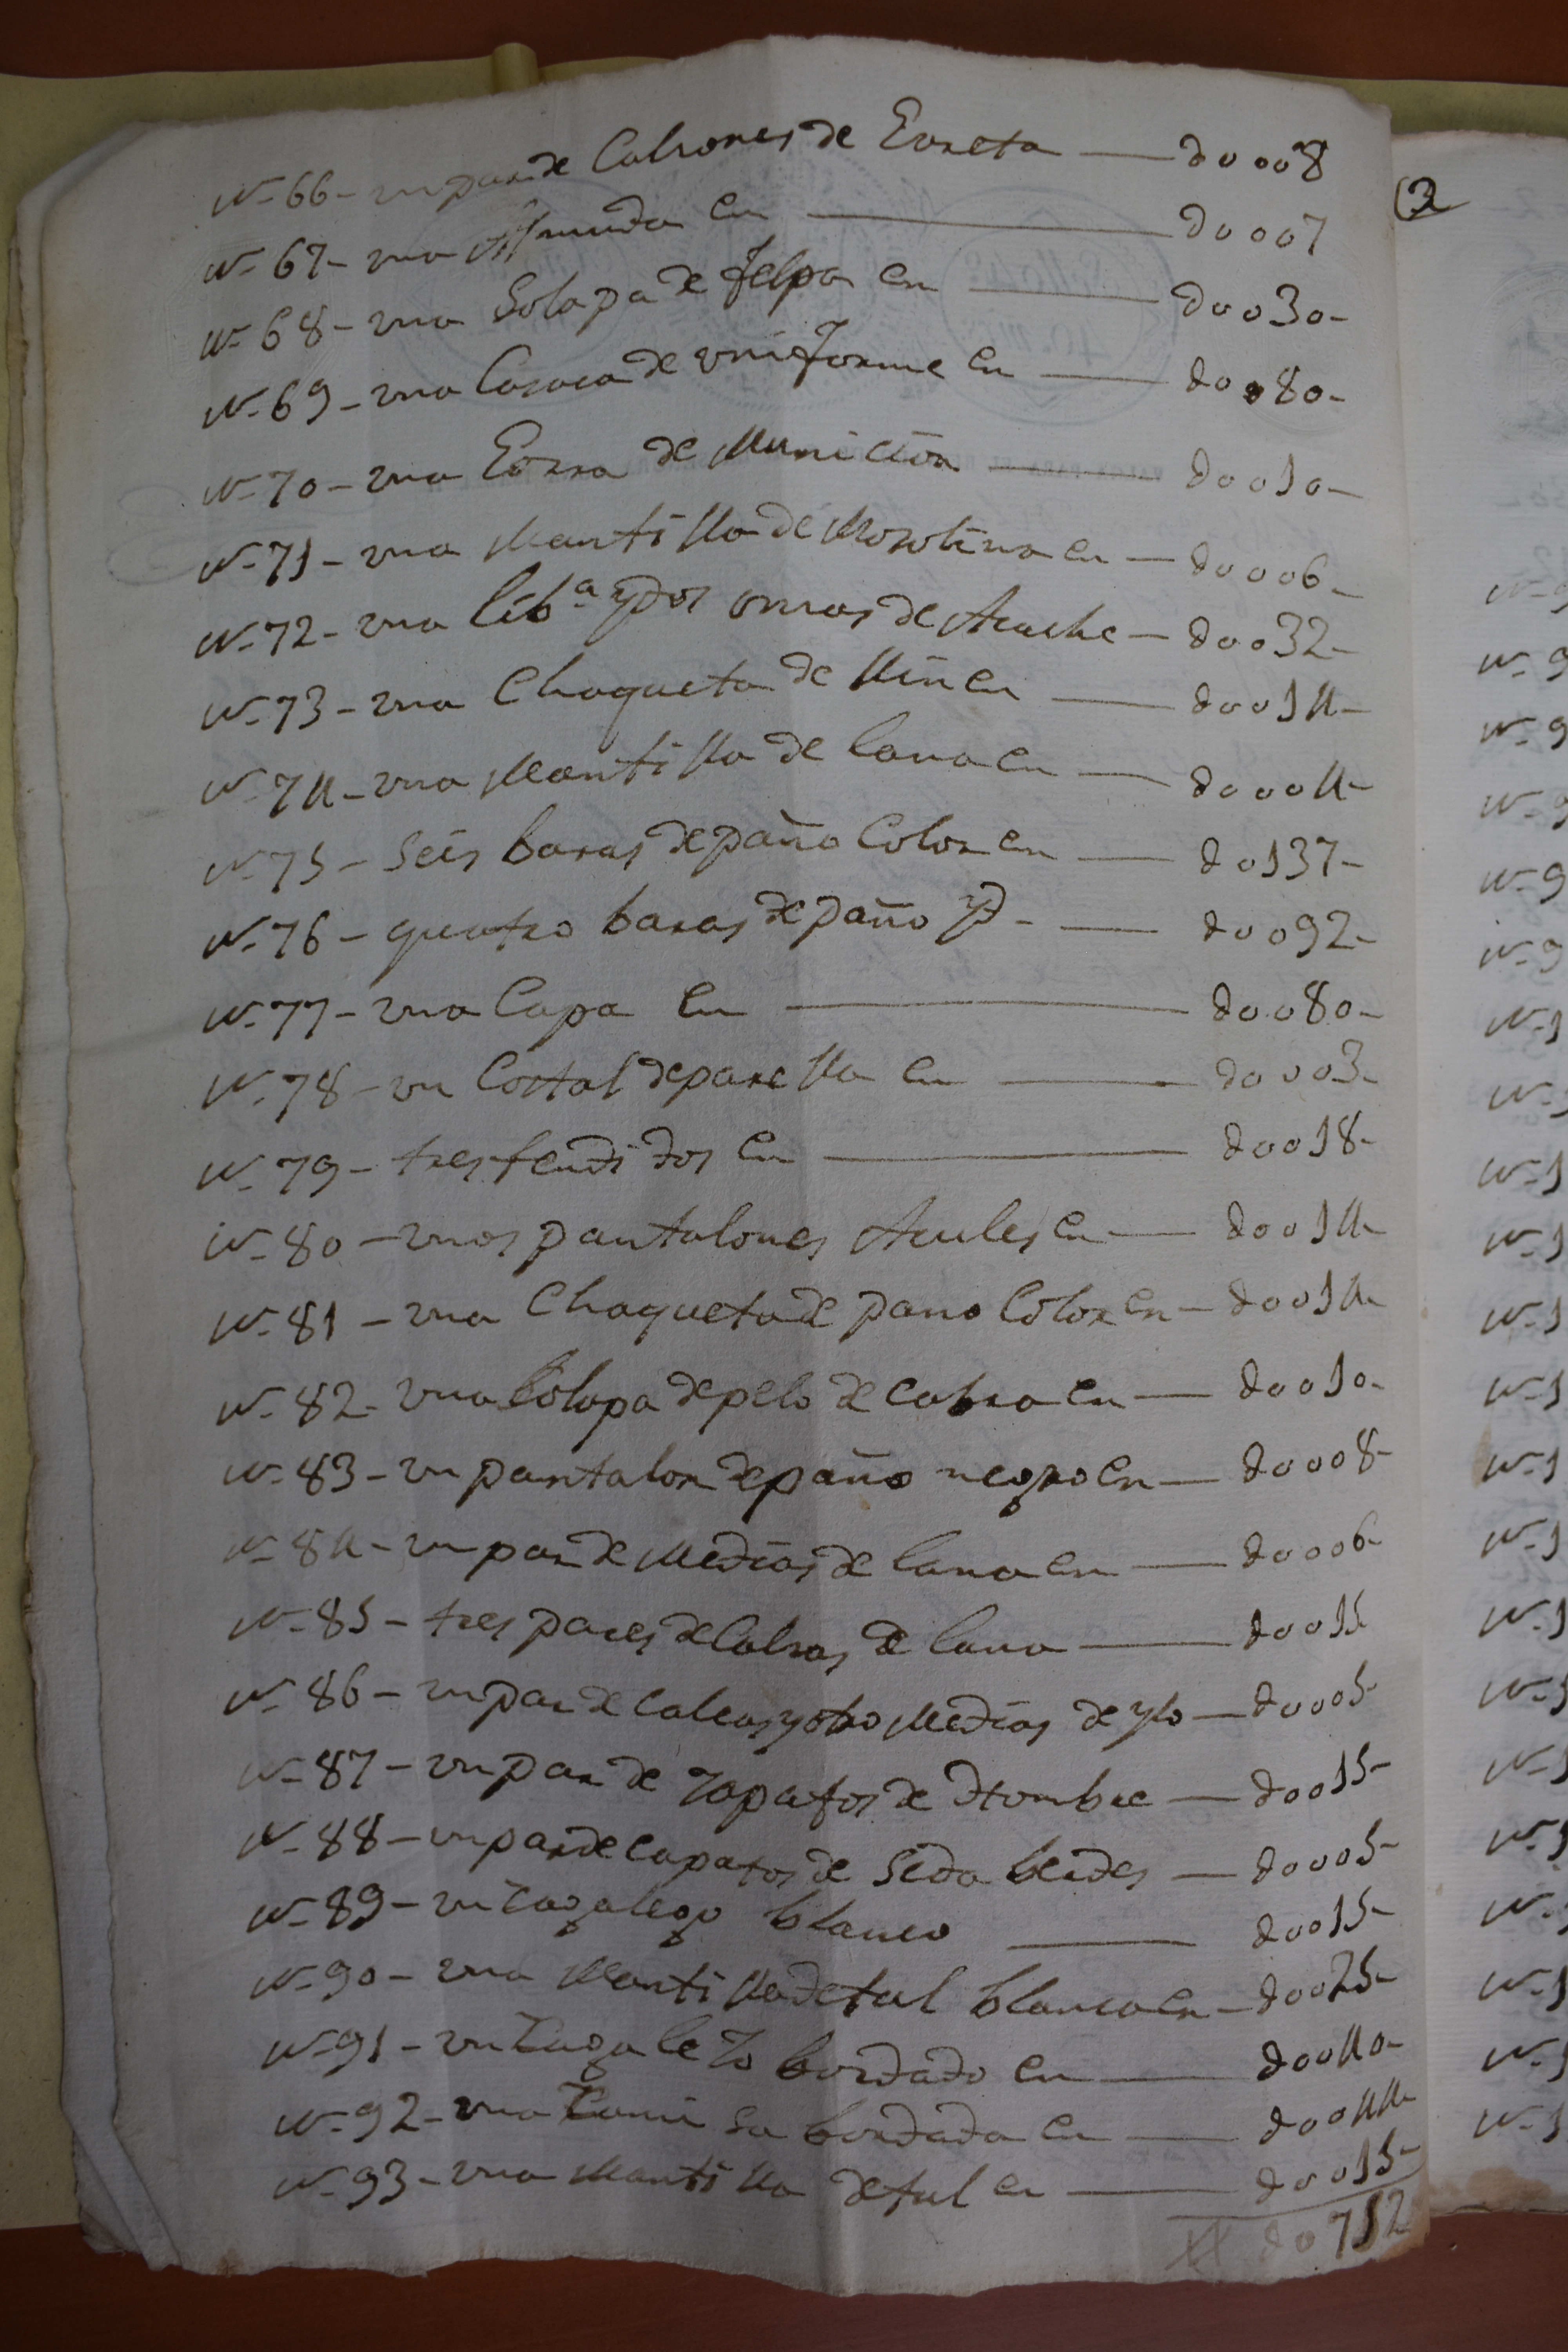 Nº 66 - un par de Calsones de Eoreta — do 008
Nº 67 - una Almuda en — do 007
Nº 68 - una Solapa de felpa en — do 030 -
Nº 69 - una Casaca de uniforme en — do 080 -
Nº 70 - una Gorra de Municion — do 010 -
Nº 71 - una Mantilla de Mosolina en — do 006 -
Nº 72 - una libª y dos onsas de Aceche — do 032 -
Nº 73 - una Chaqueta de Min en — do 014 -
Nº 74 - una Mantilla de lana en — do 004 -
Nº 75 - Seis baras de paño Color en — do 137 -
Nº 76 - quatro baras de paño yd - — do 092 -
Nº 77 - una Capa en — do 080 -
Nº 78 - un Costal de parella en — do 003 -
Nº 79 - tres tendidos en — do 018 -
Nº 80 - unos pantalones Acules en — do 014 -
Nº 81 - una Chaqueta de pano Color en — do 014 -
Nº 82 - una Solapa de pelo de cabra en — do 010 -
Nº 83 - un pantalon de paño negro en — do 008 -
Nº 84 - un par de Medias de lana en — do 006 -
Nº 85 - tres pares de Calsas de lana — do 015
Nº 86 - un par de calcas y otro Medias de ylo — do 005 -
Nº 87 - un par de Zapatos de Hombre — do 015 -
Nº 88 - un par de capatos de Seda berdes — do 005 -
Nº 89 - un cagalego blanco — do 015 -
Nº 90 - una Mantilla de tul blanca en — do 025 -
Nº 91 - un Zagalejo bordado en — do 040 -
Nº 92 - una Camisa bordada en — do 044 -
Nº 93 - una Mantilla de tul en — do 015 -
do 752
(2